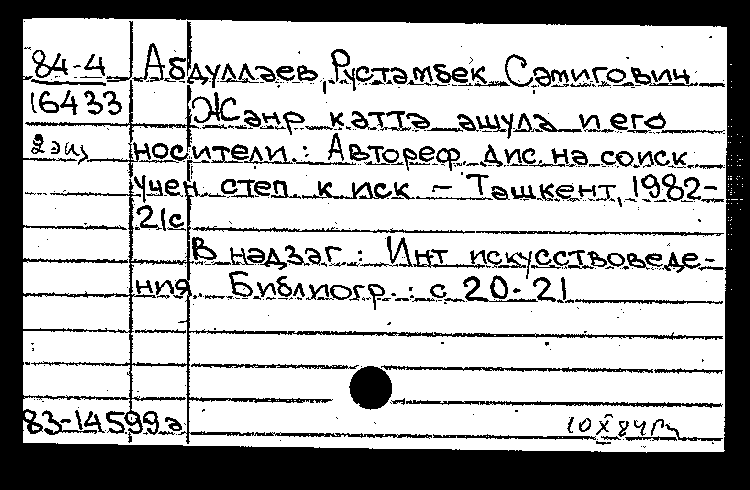 84-4 Абдуллаев, Рустамбек Самигович
16433 Жанр катта ашула и его
2 экз носители.: Автореф дис. на соиск
учен степ к иск – Ташкент, 1982-
21с
В надзаг: Инт искусствоведе-
ния. Библиогр.: с 20-21
83-14599а
10 X 84